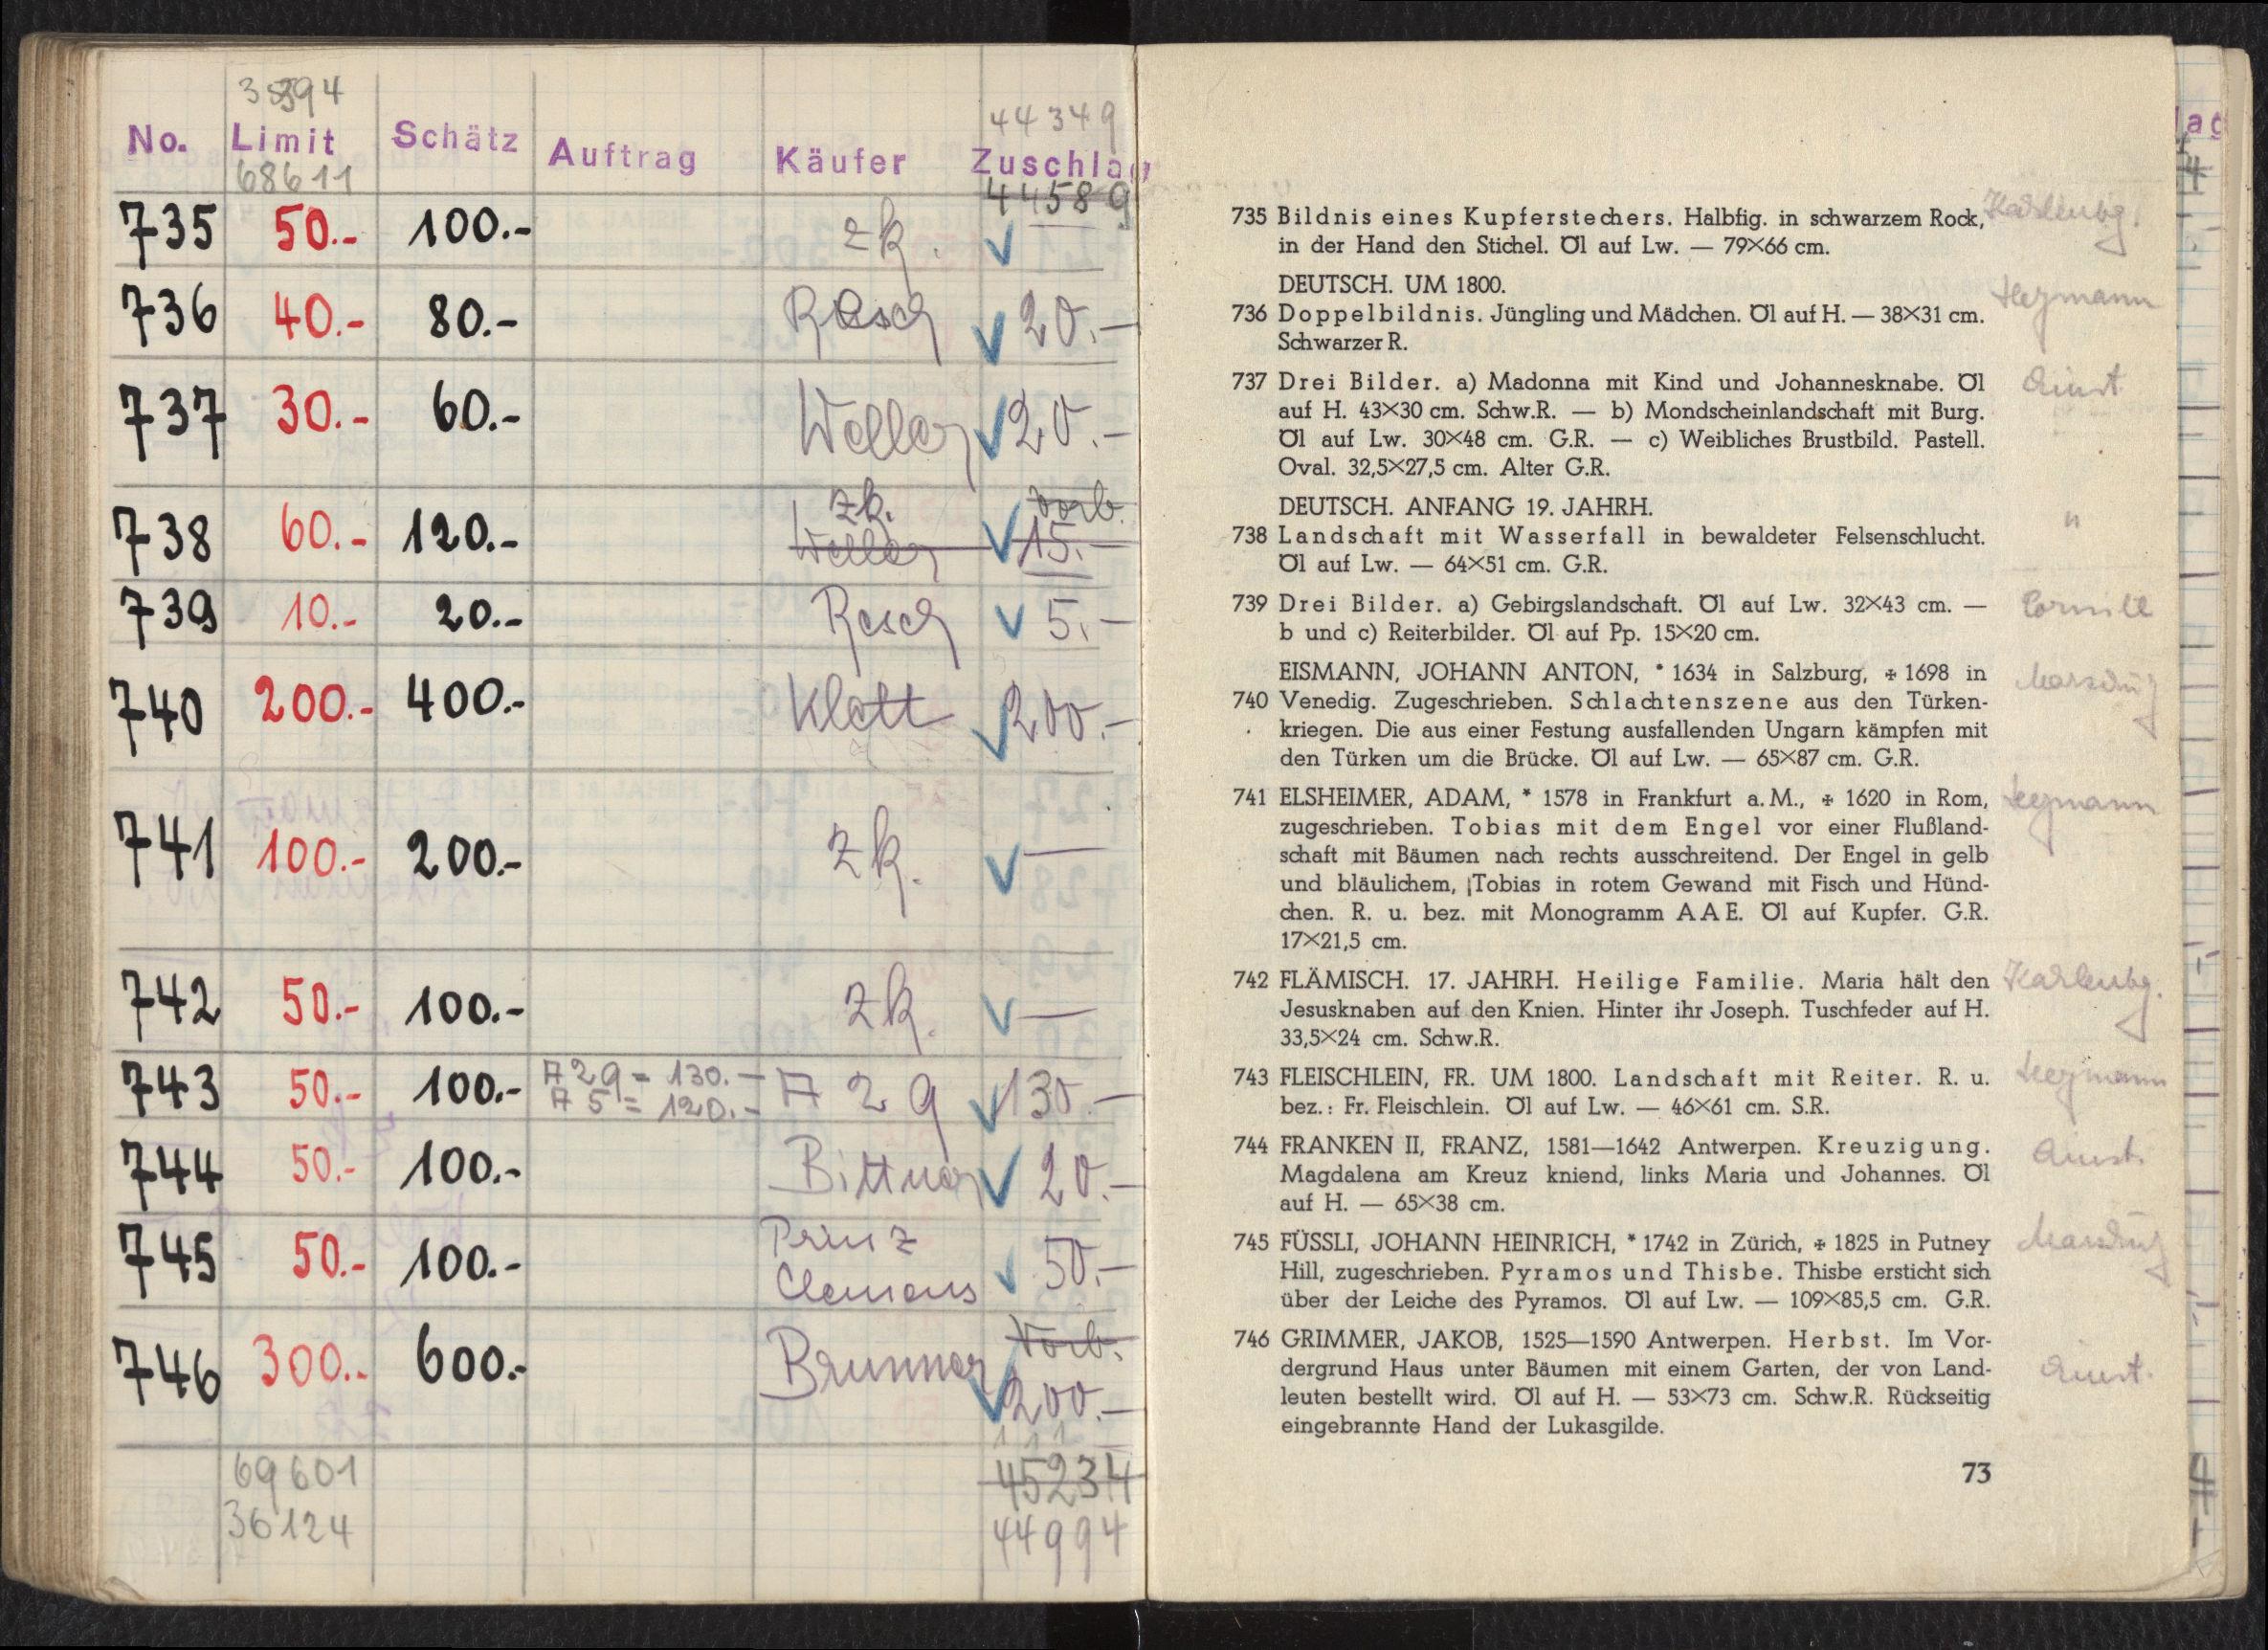 35394
44349
No. Limit Schätz Auftrag Käufer Zuschlag
68611
44589
735 50.- 100.- zk. —
736 40.- 80.- Resch 20.-
737 30.- 60.- Weller 20.-
zk. Vorb.
738 60.- 120.- Weller 15.-
739 10.- 20.- Resch 5.-
740 200.- 400.- Klett 200.-
741 100.- 200.- zk. —
742 50.- 100.- zk. —
743 50.- 100.- A 29 = 130.- A 29 130.-
A 5 = 120.-
744 50.- 100.- Bittner 20.-
745 50.- 100.- Prinz
Clemens 50.-
Vorb.
746 300.- 600.- Brunner 200.-
69601 45234
36124 44994
735 Bildnis eines Kupferstechers. Halbfig. in schwarzem Rock,
in der Hand den Stichel. Öl auf Lw. — 79×66 cm.
DEUTSCH. UM 1800.
736 Doppelbildnis. Jüngling und Mädchen. Öl auf H. — 38×31 cm.
Schwarzer R.
737 Drei Bilder. a) Madonna mit Kind und Johannesknabe. Öl
auf H. 43×30 cm. Schw.R. — b) Mondscheinlandschaft mit Burg.
Öl auf Lw. 30×48 cm. G.R. — c) Weibliches Brustbild. Pastell.
Oval. 32,5×27,5 cm. Alter G.R.
DEUTSCH. ANFANG 19. JAHRH.
"
738 Landschaft mit Wasserfall in bewaldeter Felsenschlucht.
Öl auf Lw. — 64×51 cm. G.R.
739 Drei Bilder. a) Gebirgslandschaft. Öl auf Lw. 32×43 cm. —
b und c) Reiterbilder. Öl auf Pp. 15×20 cm.
EISMANN, JOHANN ANTON, * 1634 in Salzburg, ✠ 1698 in
740 Venedig. Zugeschrieben. Schlachtenszene aus den Türken-
kriegen. Die aus einer Festung ausfallenden Ungarn kämpfen mit
den Türken um die Brücke. Öl auf Lw. — 65×87 cm. G.R.
741 ELSHEIMER, ADAM, * 1578 in Frankfurt a. M., ✠ 1620 in Rom,
zugeschrieben. Tobias mit dem Engel vor einer Flußland-
schaft mit Bäumen nach rechts ausschreitend. Der Engel in gelb
und bläulichem, Tobias in rotem Gewand mit Fisch und Hünd-
chen. R. u. bez. mit Monogramm A A E. Öl auf Kupfer. G.R.
17×21,5 cm.
742 FLÄMISCH. 17. JAHRH. Heilige Familie. Maria hält den
Jesusknaben auf den Knien. Hinter ihr Joseph. Tuschfeder auf H.
33,5×24 cm. Schw.R.
743 FLEISCHLEIN, FR. UM 1800. Landschaft mit Reiter. R. u.
bez.: Fr. Fleischlein. Öl auf Lw. — 46×61 cm. S.R.
744 FRANKEN II, FRANZ, 1581—1642 Antwerpen. Kreuzigung.
Magdalena am Kreuz kniend, links Maria und Johannes. Öl
auf H. — 65×38 cm.
745 FÜSSLI, JOHANN HEINRICH, * 1742 in Zürich, ✠ 1825 in Putney
Hill, zugeschrieben. Pyramos und Thisbe. Thisbe ersticht sich
über der Leiche des Pyramos. Öl auf Lw. — 109×85,5 cm. G.R.
746 GRIMMER, JAKOB, 1525—1590 Antwerpen. Herbst. Im Vor-
dergrund Haus unter Bäumen mit einem Garten, der von Land-
leuten bestellt wird. Öl auf H. — 53×73 cm. Schw.R. Rückseitig
eingebrannte Hand der Lukasgilde.
73